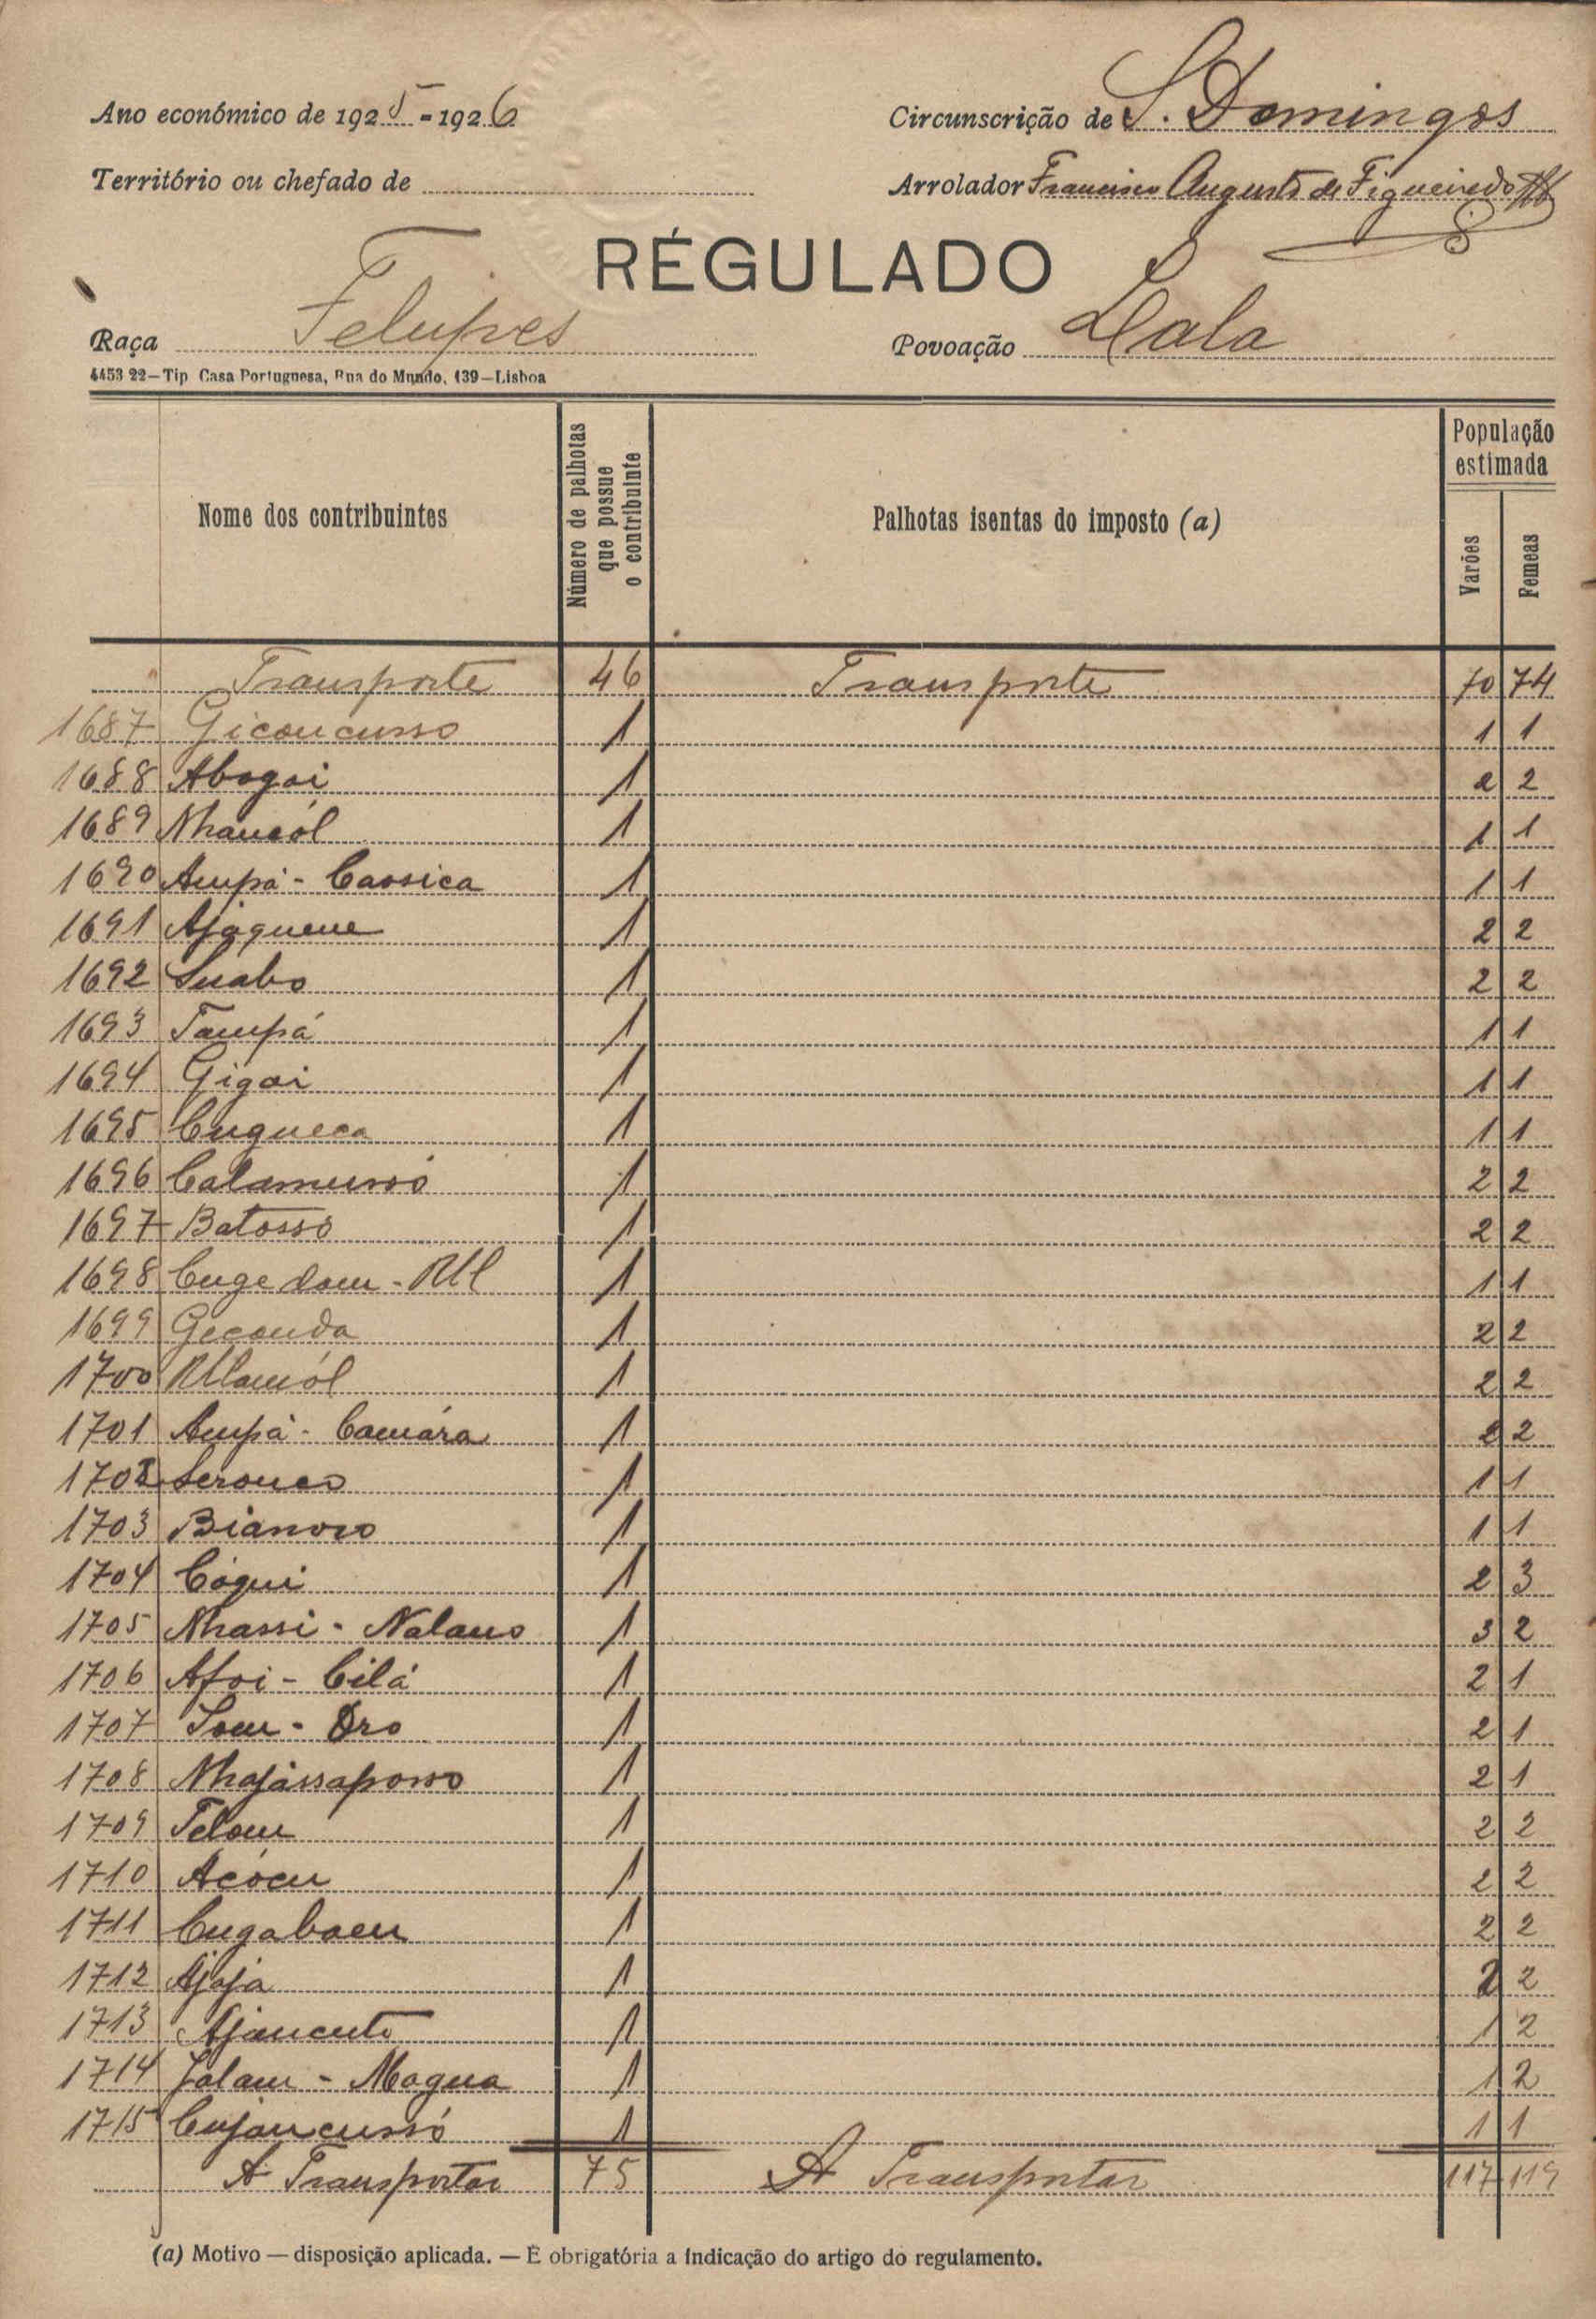 Ano económico de 1925-1926 Circunscrição de S. Domingos
Território ou chefado de Arrolador Francisco Augusto de Figueiredo
RÉGULADO
Raça Felupes Povoação Lala
4453 22—Tip Casa Portuguesa, Rua do Mundo, 139—Lisboa
Nome dos contribuintes Número de palhotas que possue o contribuinte Palhotas isentas do imposto (a) População estimada Varões Femeas
Transporte 46 Transporte 70 74
1687 Giconcusso 1 1 1
1688 Abogai 1 2 2
1689 Nhancól 1 1 1
1690 Ampá - Cassica 1 1 1
1691 Ajaquene 1 2 2
1692 Suabo 1 2 2
1693 Tampá 1 1 1
1694 Gigai 1 1 1
1695 Cugueca 1 1 1
1696 Calamussó 1 2 2
1697 Batossó 1 2 2
1698 Cugedam - 1 1 1
1699 Geconda 1 2 2
1700 1 2 2
1701 Ampá - Camára 1 2 2
1702 Seronco 1 1 1
1703 Bianoso 1 1 1
1704 Cógui 1 2 3
1705 Nhassi - Nalano 1 3 2
1706 Afoi - Cilá 1 2 1
1707 Som - Oro 1 2 1
1708 Nhajássaposso 1 2 1
1709 Telam 1 2 2
1710 Acócu 1 2 2
1711 Cugabaem 1 2 2
1712 Ajaja 1 2 2
1713 Ajancuto 1 1 2
1714 Jalam - Magna 1 1 2
1715 Cujancussó 1 1 1
A Transportar 75 A Transportar 117 119
(a) Motivo — disposição aplicada. — É obrigatória a indicação do artigo do regulamento.